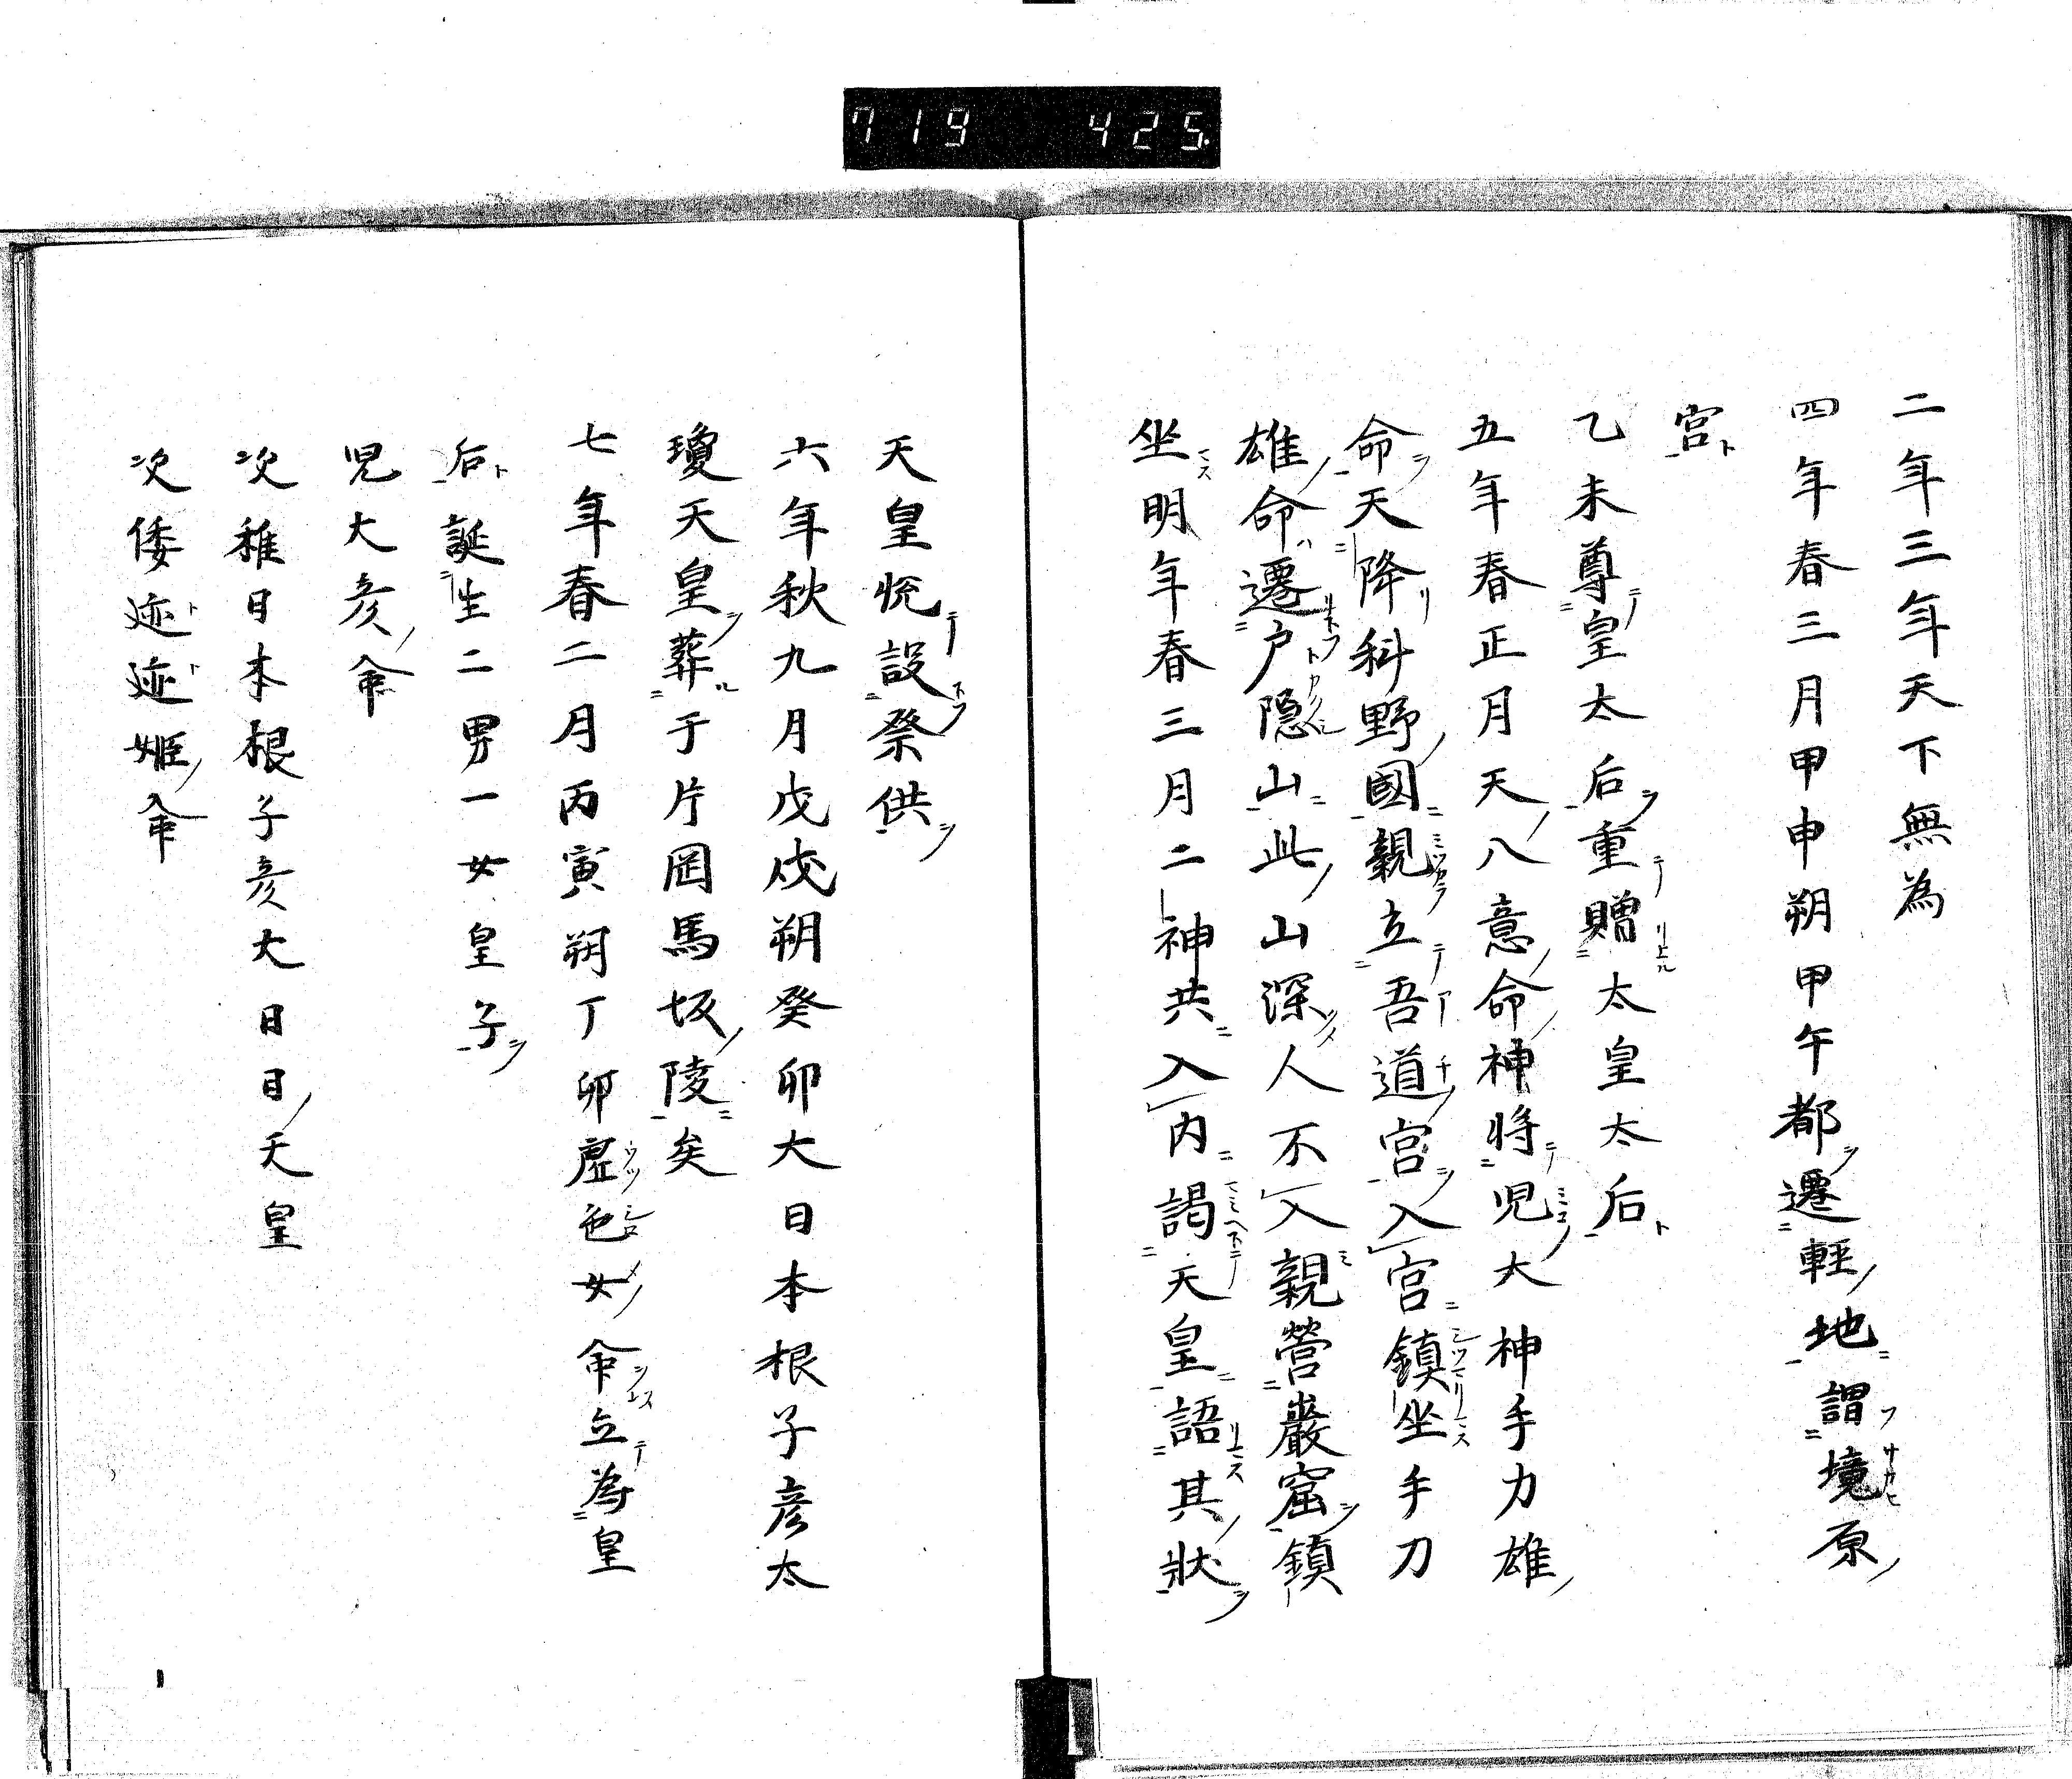 719 425
二年三年天下無為
四年春三月甲申朔甲午都遷輕地謂境原
宮
乙未尊皇太后重贈太皇太后
五年春正月天八意命神将児大神手力雄
命天降科野國親立吾道宮入宮鎮坐手刀
雄命遷戸隠山此山深人不入親營巌窟鎮
坐明年春三月二神共入内謁天皇語其状
天皇悦設祭供
六年秋九月戊戌朔癸卯大日本根子彦太
瓊天皇葬于片岡馬坂陵矣
七年春二月丙寅朔丁卯虚色女命立為皇
后誕生二男一女皇子
児大彦命
次稚日本根子彦大日日天皇
次倭迹迹姫命